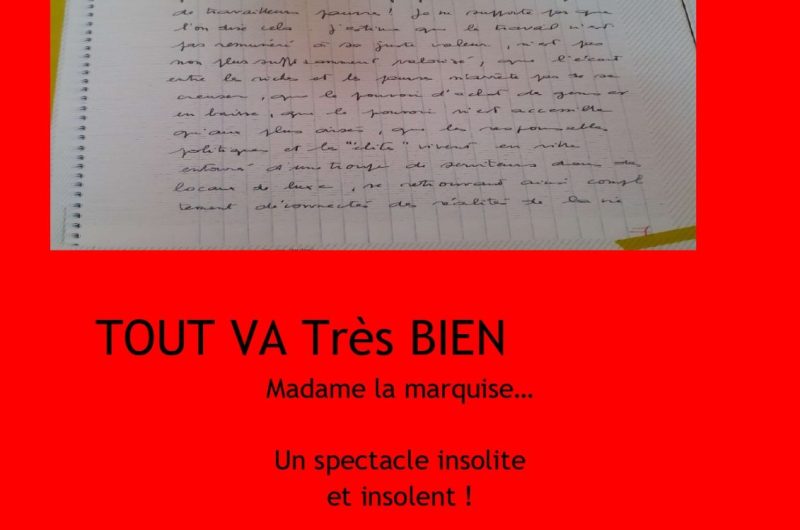 de travailleurs pauvres! Je ne supporte pas que
l'on dise cela. J'estime que le travail n'est
pas rémunéré à sa juste valeur, n'est pas
non plus suffisamment valorisé, que l'écart
entre le riche et le pauvre n'arrête pas de se
creuser, que le pouvoir d'achat de gens est
en baisse, que le pouvoir n'est accessible
qu'aux plus aisés, que les responsables
politiques et la "élite" vivent en ville
entouré d'une troupe de serviteurs dans des
locaux de luxe, se retrouvant ainsi complè
tement déconnectés des réalités de la vie
TOUT VA Très BIEN
Madame la marquise…
Un spectacle insolite
et insolent !